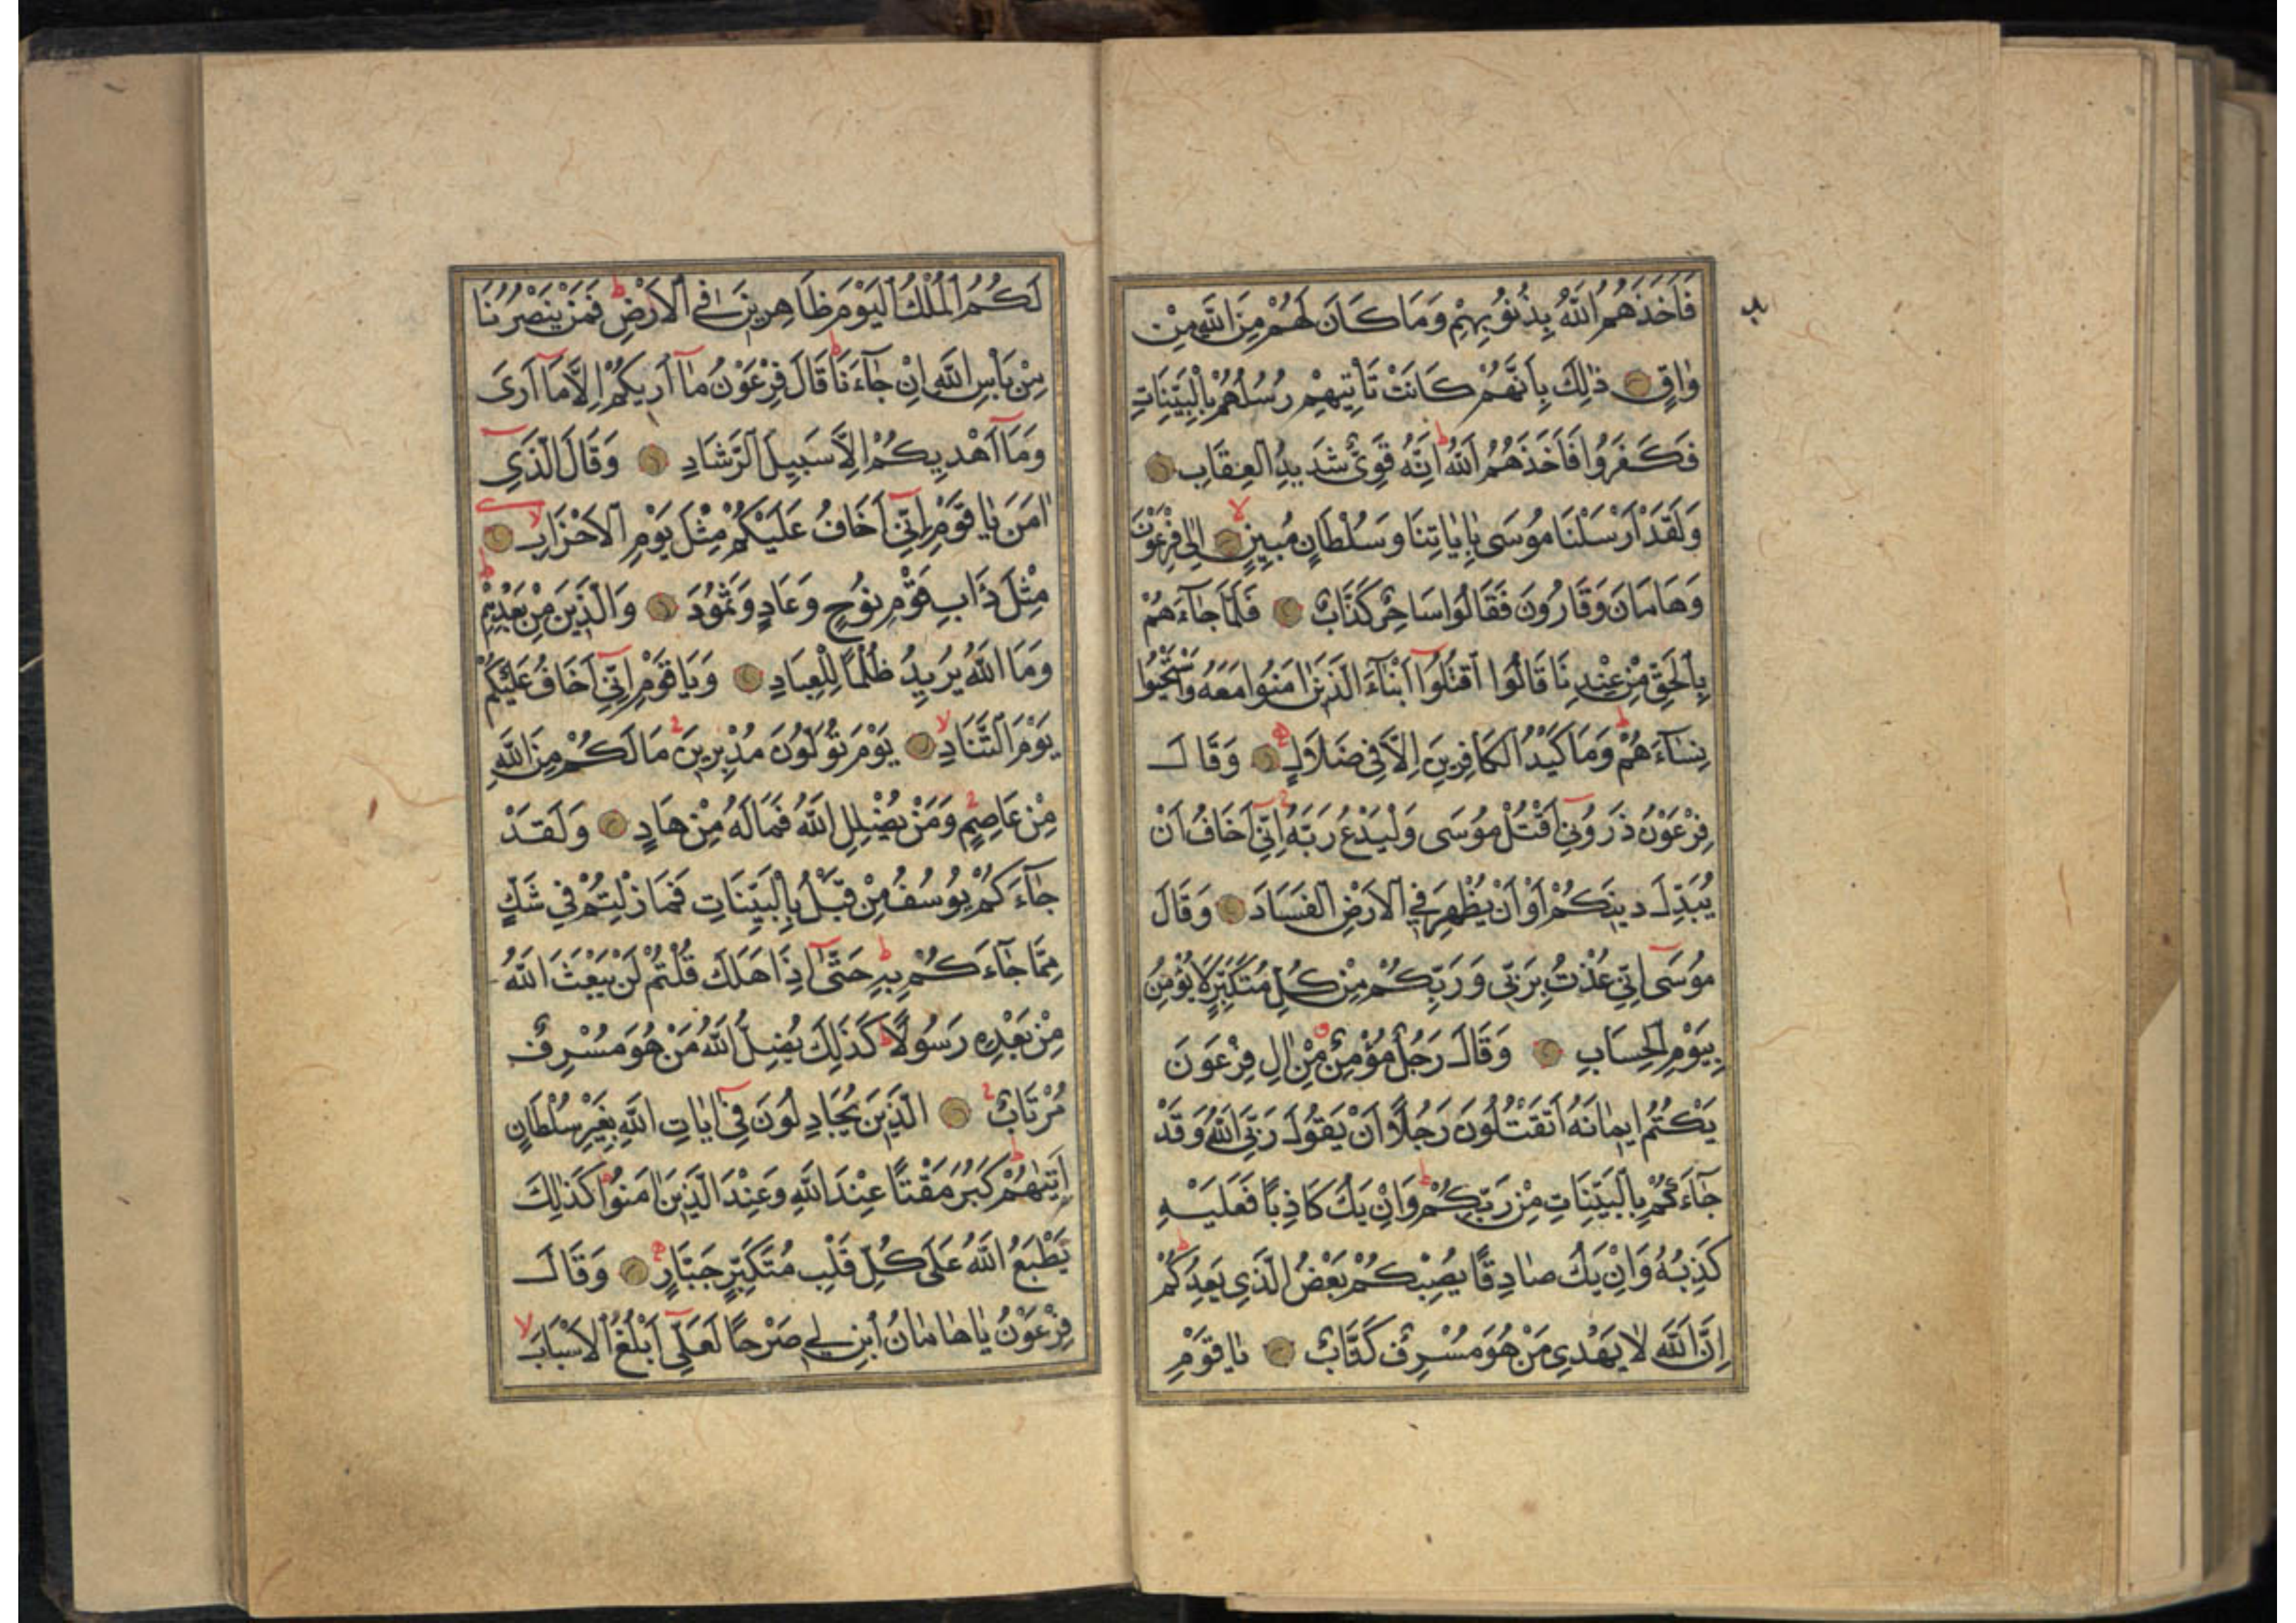 فَاَخَذَهُمُ اللّٰهُ بِذُنُوبِهِمْ وَمَا كَانَ لَهُمْ مِنَ اللّٰهِ مِنْ
وَاقٍ ذٰلِكَ بِاَنَّهُمْ كَانَتْ تَاْتِيهِمْ رُسُلُهُمْ بِالْبَيِّنَاتِ
فَكَفَرُوا فَاَخَذَهُمُ اللّٰهُ ط اِنَّهُ قَوِيٌّ شَدِيدُ الْعِقَابِ
وَلَقَدْ اَرْسَلْنَا مُوسَى بِاٰيَاتِنَا وَسُلْطَانٍ مُبِينٍ لا اِلٰى فِرْعَوْنَ
وَهَامَانَ وَقَارُونَ فَقَالُوا سَاحِرٌ كَذَّابٌ فَلَمَّا جَآءَهُمْ
بِالْحَقِّ مِنْ عِنْدِنَا قَالُوا اقْتُلُوٓا اَبْنَآءَ الَّذِينَ اٰمَنُوا مَعَهُ وَاسْتَحْيُوا
نِسَآءَهُمْ ط وَمَا كَيْدُ الْكَافِرِينَ اِلَّا فِي ضَلَالٍ وَقَالَ
فِرْعَوْنُ ذَرُونِٓي اَقْتُلْ مُوسَى وَلْيَدْعُ رَبَّهُ اِنِّٓي اَخَافُ اَنْ
يُبَدِّلَ دِينَكُمْ اَوْ اَنْ يُظْهِرَ فِي الْاَرْضِ الْفَسَادَ وَقَالَ
مُوسَٓى اِنِّي عُذْتُ بِرَبِّي وَرَبِّكُمْ مِنْ كُلِّ مُتَكَبِّرٍ لَا يُؤْمِنُ
بِيَوْمِ الْحِسَابِ وَقَالَ رَجُلٌ مُؤْمِنٌ مِنْ اٰلِ فِرْعَوْنَ
يَكْتُمُ اِيمَانَهُ اَتَقْتُلُونَ رَجُلًا اَنْ يَقُولَ رَبِّيَ اللّٰهُ وَقَدْ
جَآءَكُمْ بِالْبَيِّنَاتِ مِنْ رَبِّكُمْ ط وَاِنْ يَكُ كَاذِبًا فَعَلَيْهِ
كَذِبُهُ وَاِنْ يَكُ صَادِقًا يُصِبْكُمْ بَعْضُ الَّذِي يَعِدُكُمْ ط
اِنَّ اللّٰهَ لَا يَهْدِي مَنْ هُوَ مُسْرِفٌ كَذَّابٌ يَا قَوْمِ
لَكُمُ الْمُلْكُ الْيَوْمَ ظَاهِرِينَ فِي الْاَرْضِ ط فَمَنْ يَنْصُرُنَا
مِنْ بَاْسِ اللّٰهِ اِنْ جَآءَنَا ط قَالَ فِرْعَوْنُ مَآ اُرِيكُمْ اِلَّا مَآ اَرٰى
وَمَآ اَهْدِيكُمْ اِلَّا سَبِيلَ الرَّشَادِ وَقَالَ الَّذِٓي
اٰمَنَ يَا قَوْمِ اِنِّٓي اَخَافُ عَلَيْكُمْ مِثْلَ يَوْمِ الْاَحْزَابِ لا
مِثْلَ دَابِ قَوْمِ نُوحٍ وَعَادٍ وَثَمُودَ وَالَّذِينَ مِنْ بَعْدِهِمْ ط
وَمَا اللّٰهُ يُرِيدُ ظُلْمًا لِلْعِبَادِ وَيَا قَوْمِ اِنِّٓي اَخَافُ عَلَيْكُمْ
يَوْمَ التَّنَادِ لا يَوْمَ تُوَلُّونَ مُدْبِرِينَ مَا لَكُمْ مِنَ اللّٰهِ
مِنْ عَاصِمٍ وَمَنْ يُضْلِلِ اللّٰهُ فَمَا لَهُ مِنْ هَادٍ وَلَقَدْ
جَآءَكُمْ يُوسُفُ مِنْ قَبْلُ بِالْبَيِّنَاتِ فَمَا زِلْتُمْ فِي شَكٍّ
مِمَّا جَآءَكُمْ بِهِ ط حَتّٰٓى اِذَا هَلَكَ قُلْتُمْ لَنْ يَبْعَثَ اللّٰهُ
مِنْ بَعْدِهِ رَسُولًا ط كَذٰلِكَ يُضِلُّ اللّٰهُ مَنْ هُوَ مُسْرِفٌ
مُرْتَابٌ الَّذِينَ يُجَادِلُونَ فِٓي اٰيَاتِ اللّٰهِ بِغَيْرِ سُلْطَانٍ
اَتٰيهُمْ ط كَبُرَ مَقْتًا عِنْدَ اللّٰهِ وَعِنْدَ الَّذِينَ اٰمَنُوا ط كَذٰلِكَ
يَطْبَعُ اللّٰهُ عَلٰى كُلِّ قَلْبِ مُتَكَبِّرٍ جَبَّارٍ وَقَالَ
فِرْعَوْنُ يَا هَامَانُ ابْنِ لِي صَرْحًا لَعَلِّٓي اَبْلُغُ الْاَسْبَابَ لا